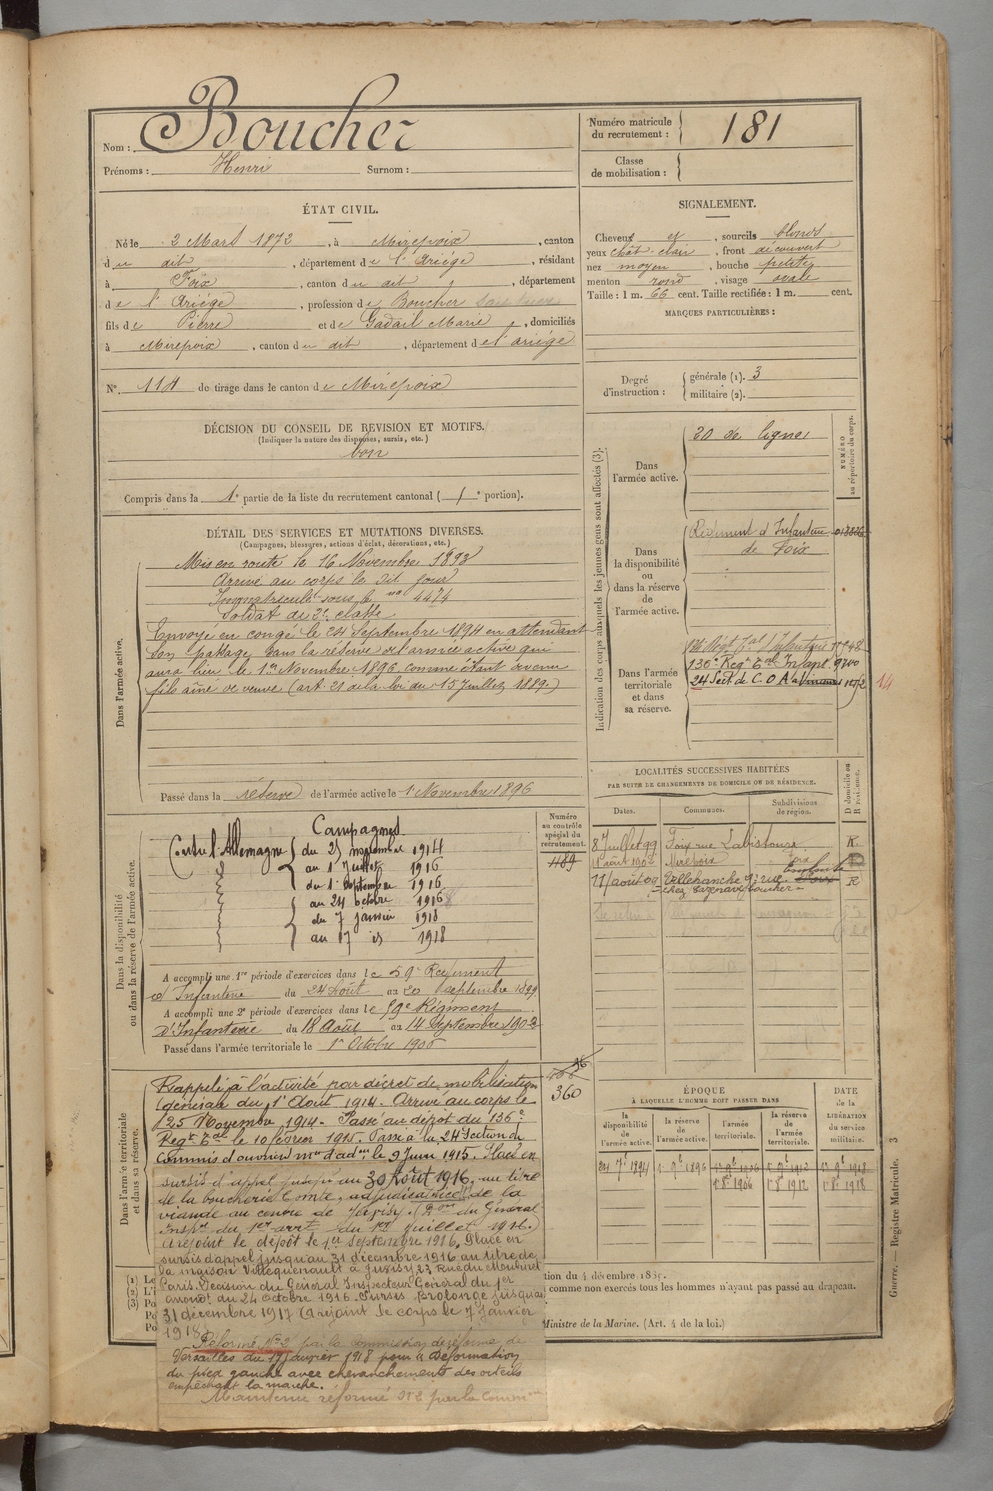 Nom : Boucher
Prénoms : Henri Surnom :
Numéro matricule du recrutement : 181
Classe de mobilisation :
ÉTAT CIVIL.
Né le 2 Mars 1872, à Mirepoix, canton
du dit, département de l'Ariége, résidant
à Foix, canton du dit, département
de l'Ariége, profession de Boucher
fils de Pierre et de Gadail Marie, domiciliés
à Mirepoix, canton du dit, département de l'ariége
N° 114 de tirage dans le canton de Mirepoix
SIGNALEMENT.
Cheveux et, sourcils blonds
yeux chât. clair, front découvert
nez moyen, bouche petite
menton rond, visage ovale
Taille : 1 m. 66 cent. Taille rectifiée : 1 m. cent.
MARQUES PARTICULIÈRES :
Degré d'instruction : générale (1). 3
militaire (2).
DÉCISION DU CONSEIL DE REVISION ET MOTIFS.
(Indiquer la nature des dispenses, sursis, etc.)
bon
Compris dans la 1e partie de la liste du recrutement cantonal ( e portion).
DÉTAIL DES SERVICES ET MUTATIONS DIVERSES.
(Campagnes, blessures, actions d'éclat, décorations, etc.)
Dans l'armée active.
Mis en route le 16 Novembre 1893
Arrivé au corps le dit jour
Immatriculé sous le no 4474
Soldat de 2e classe
Envoyé en congé le 24 Septembre 1894 en attendant
son passage dans la réserve de l'armée active qui
aura lieu le 1er Novembre 1896 comme étant devenu
fils aîné de veuve (art. 21 de la loi du 15 Juillet 1889.)
Passé dans la réserve de l'armée active le 1 Novembre 1896
Indication des corps auxquels les jeunes gens sont affectés (3).
NUMÉRO au répertoire du corps.
Dans l'armée active.
20 de ligne
Dans la disponibilité ou dans la réserve de l'armée active.
Régiment d'Infanterie
de Foix
Dans l'armée territoriale et dans sa réserve.
136e Regt Eal Infant. 9700
24 Sect de C.O.A 1072
14
LOCALITÉS SUCCESSIVES HABITÉES
PAR SUITE DE CHANGEMENTS DE DOMICILE OU DE RÉSIDENCE.
Dates. Communes. Subdivisions de région. D domicile ou R résidence.
8 Juillet 99 Foix rue Labistouze R
1er août 1902 Mirepoix Foix
11 août 07 Villefranche R
chez Cazenave boucher
Dans la disponibilité ou dans la réserve de l'armée active.
Numéro au contrôle spécial du recrutement.
1189
Campagnes
Contre l'Allemagne du 25 novembre 1914
au 1 Juillet 1916
du 1er Septembre 1916
au 24 octobre 1916
du 7 janvier 1918
au 17 is 1918
A accompli une 1re période d'exercices dans le 59e Régiment
d'Infanterie du 24 Août au 20 Septembre 1899
A accompli une 2e période d'exercices dans le 59e Régiment
D'Infanterie du 18 Août au 14 Septembre 1902
Passé dans l'armée territoriale le 1er Octobre 1906
Dans l'armée territoriale et dans sa réserve.
360
Rappelé à l'activité par décret de mobilisation
général du 1er Août 1914. Arrivé au corps le
25 Novembre 1914. Passé au dépôt du 136e
Regt Eal le 10 février 1915. Passé à la 24e Section de
Commis et ouvriers mres d'adon le 9 Juin 1915. Placé en
sursis d'appel jusqu'au 30 Août 1916, au titre
de la boucherie Comte, adjudicatrice de la
viande au centre de Juvisy. (Don du Général
Inspr du 1er arrt du 1er Juillet 1916.)
A rejoint le dépôt le 1er Septembre 1916. Placé en
sursis d'appel jusqu'au 31 décembre 1916 au titre de
la maison Villequenault à Juvisy 23 Rue du Moulinet
Paris. Décision du Général Inspecteur Général du 1er
arrondt du 24 octobre 1916. Sursis prolongé jusqu'au
31 décembre 1917 (A rejoint le corps le 7 Janvier
1918
Réformé No 2 par la commission de réforme de
Versailles du 17 janvier 1918 pour « Déformation
du pied gauche avec chevauchement des orteils
empêchant la marche.
Maintenu réformé No 2 par la Comon
ÉPOQUE
À LAQUELLE L'HOMME DOIT PASSER DANS
la disponibilité de l'armée active. la réserve de l'armée active. l'armée territoriale. la réserve de l'armée territoriale. DATE de la LIBÉRATION du service militaire.
24 7e 1894 1er 9e 1896 1er 9e 1906 1er 9e 1912 1er 9e 1918
1er 8e 1906 1er 8e 1912 1er 8e 1918
tion du 4 décembre 1889.
comme non exercés tous les hommes n'ayant pas passé au drapeau.
Ministre de la Marine. (Art. 4 de la loi.)
Guerre. — Registre Matricule. 3